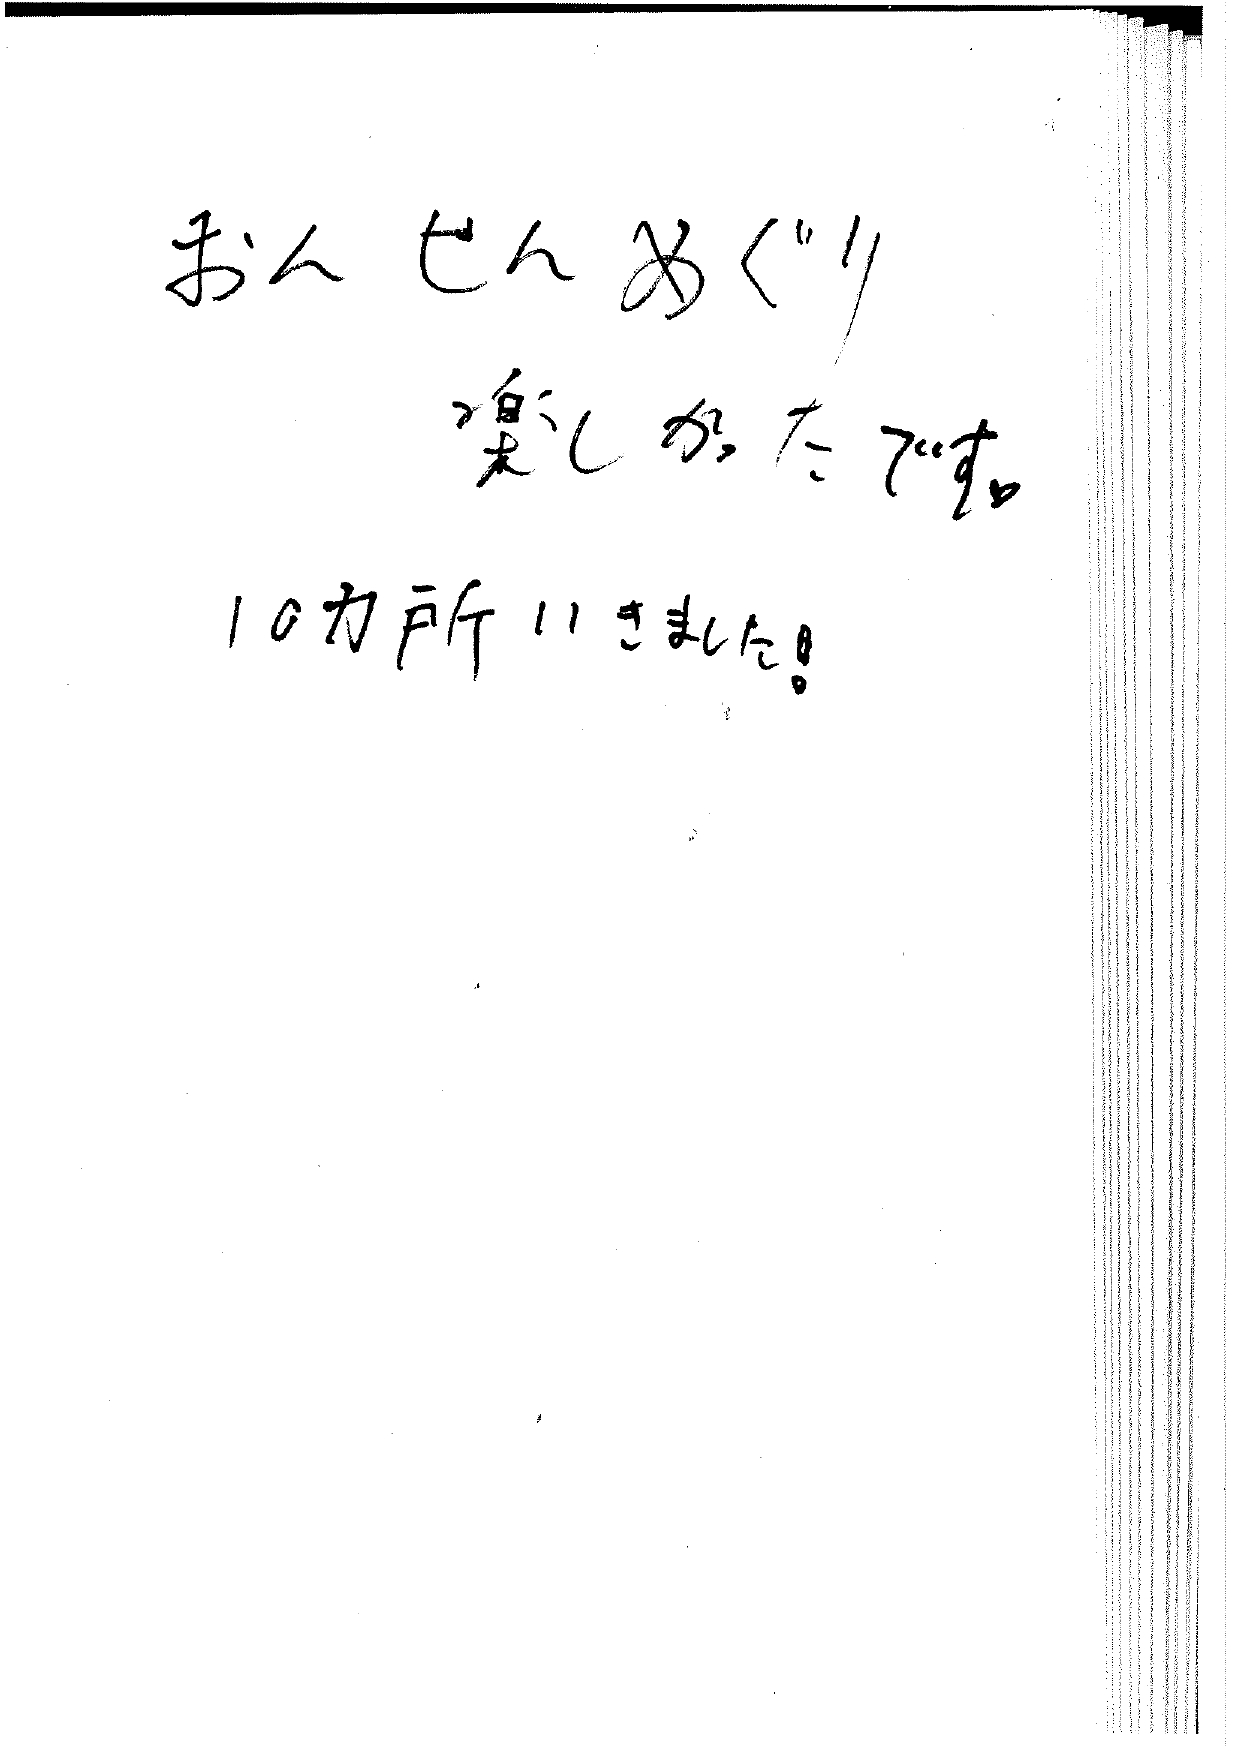 おんせんめぐり
楽しかったです♡
10カ所いきました!